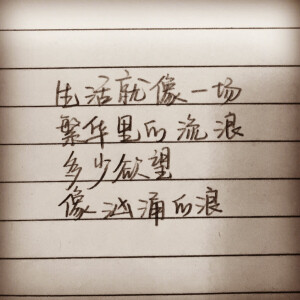 生活就像一场
繁华里的流浪
多少欲望
像汹涌的浪